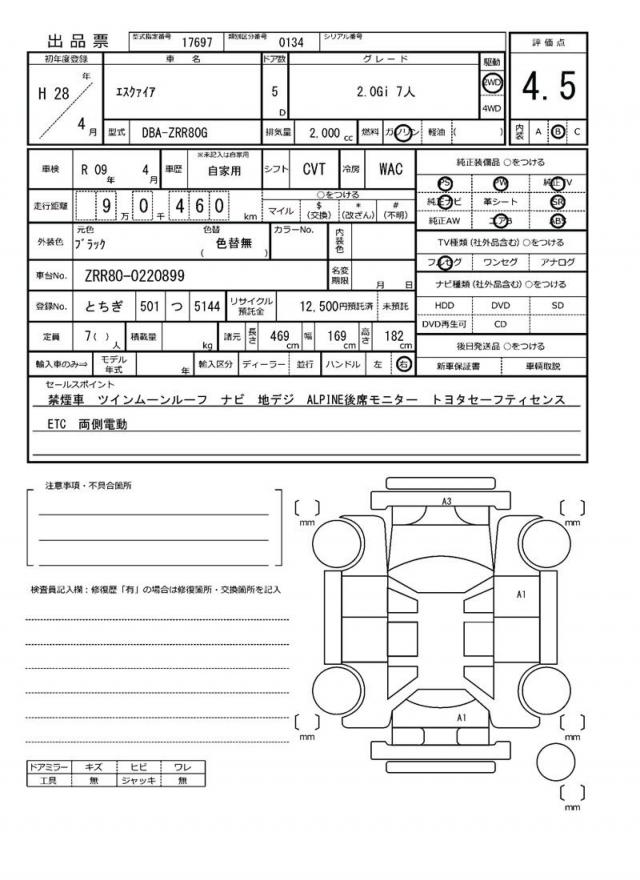 出品票 型式指定番号 17697 類別区分番号 0134 シリアル番号
初年度登録 車名 ドア数 グレード 駆動 評価点
H 28 年 4 月 エスクァイア 5 D 2.0Gi 7人 2WD 4WD 4.5
型式 DBA-ZRR80G 排気量 2,000 cc 燃料 ガソリン 軽油 ( ) 内装 A B C
車検 R 09 年 4 月 車歴 ※未記入は自家用 自家用 シフト CVT 冷房 WAC 純正装備品 ○をつける
PS PW 純正TV
走行距離 9 万 0 千 4 6 0 km ○をつける マイル $ (交換) * (改ざん) # (不明) 純正ナビ 革シート SR
純正AW エアB ABS
外装色 元色 ブラック 色替 ( 色替無 ) カラーNo. 内装色 TV種類 (社外品含む) ○をつける
フルセグ ワンセグ アナログ
車台No. ZRR80-0220899 名変期限 月 日 ナビ種類 (社外品含む) ○をつける
登録No. とちぎ 501 つ 5144 リサイクル預託金 12,500円預託済 未預託 HDD DVD SD
DVD再生可 CD
定員 7( ) 人 積載量 kg 諸元 長さ 469 cm 幅 169 cm 高さ 182 cm 後日発送品 ○をつける
輸入車のみ⇒ モデル年式 年 輸入区分 ディーラー 並行 ハンドル 左 右 新車保証書 車輌取説
セールスポイント
禁煙車 ツインムーンルーフ ナビ 地デジ ALPINE後席モニター トヨタセーフティセンス
ETC 両側電動
注意事項・不具合箇所
A3
mm mm
検査員記入欄：修復歴「有」の場合は修復箇所・交換箇所を記入
A1
A1
mm mm
ドアミラー キズ ヒビ ワレ
工具 無 ジャッキ 無
mm